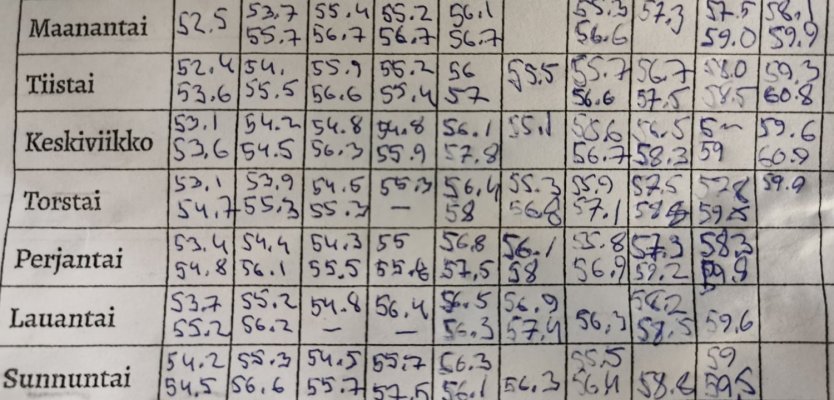 Maanantai 52.5 53.7 55.4 55.2 56.1 55.3 57.3 57.5 58.1
55.7 56.7 56.7 56.7 56.6 59.0 59.9
Tiistai 52.4 54. 55.9 55.2 56 55.5 55.7 56.7 58.0 59.3
53.6 55.5 56.6 55.4 57 56.6 57.5 58.5 60.8
Keskiviikko 53.1 54.2 54.8 54.8 56.1 55.1 55.6 56.5 59.6
53.6 54.5 56.3 55.9 57.8 56.7 58.3 59 60.9
Torstai 53.1 53.9 54.5 55.3 56.4 55.3 55.9 57.5 57.8 59.9
54.7 55.3 55.3 — 58 56.8 57.1 59.5
Perjantai 53.4 54.4 54.3 55 56.8 56.1 55.8 57.3 58.3
54.8 56.1 55.5 55.8 57.5 58 56.9 59.2 59.9
Lauantai 53.7 55.2 54.8 56.4 56.5 56.9 56.3 58.2 59.6
55.2 56.2 — — 56.3 57.4 58.5
Sunnuntai 54.2 55.3 54.5 55.7 56.3 56.3 55.5 58.8 59
54.5 56.6 55.7 57.5 56.1 56.4 59.5